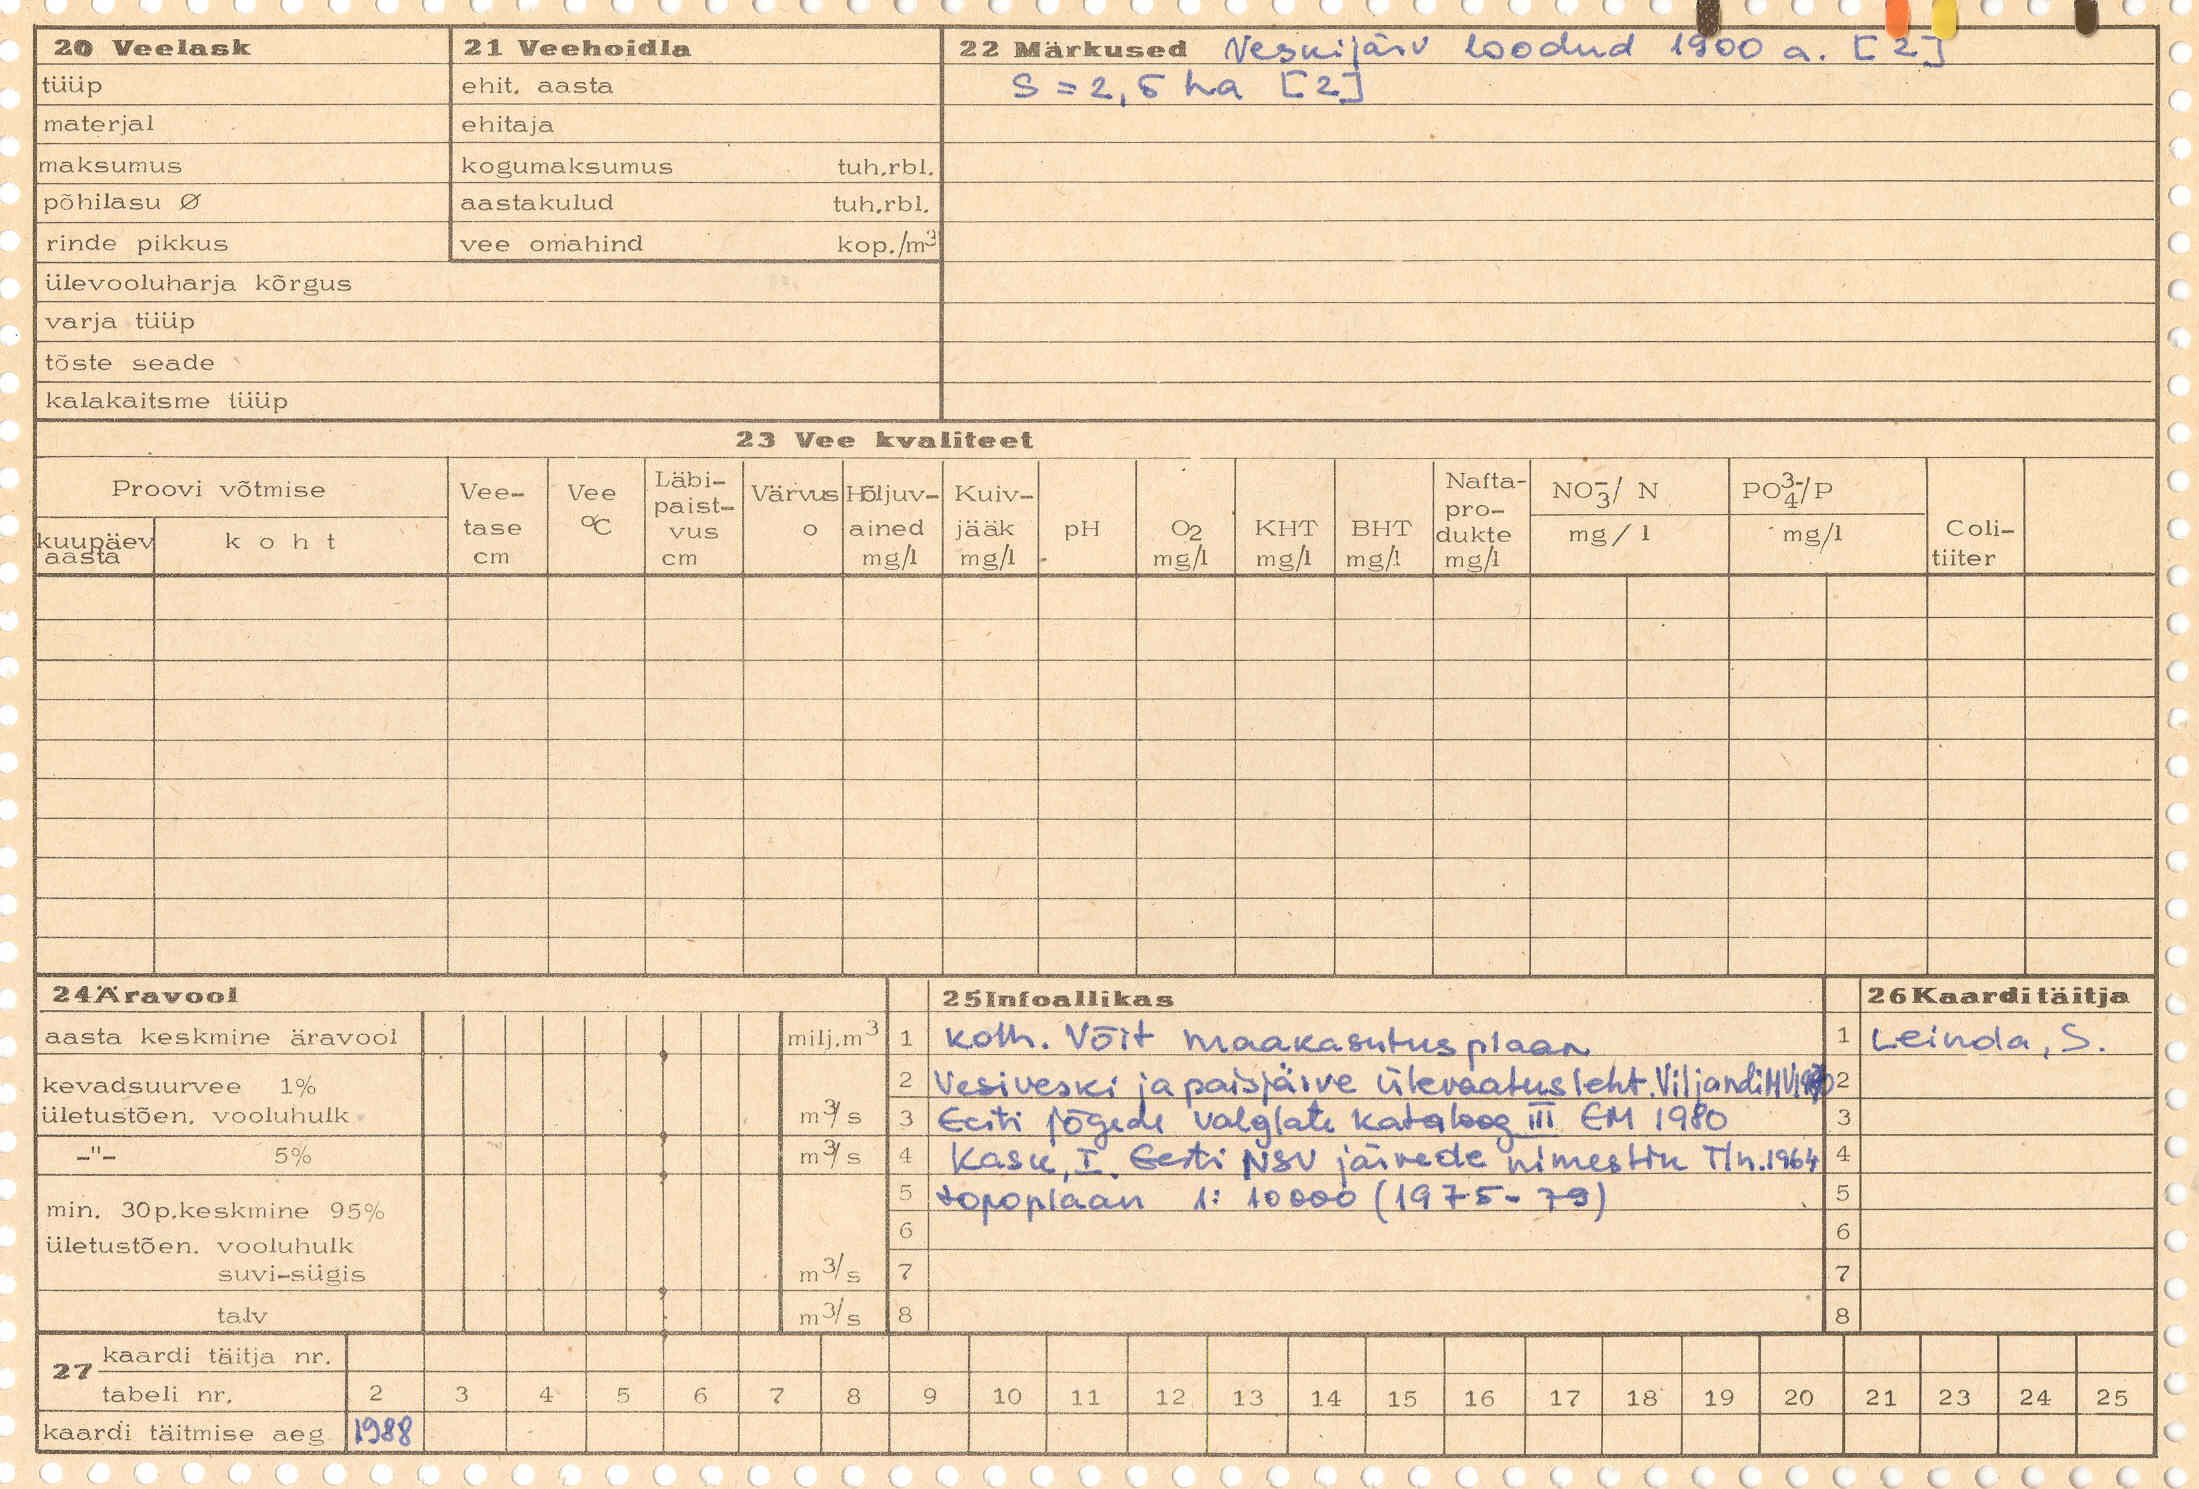 20 Veelask
tüüp
materjal
maksumus
põhilasu Ø
rinde pikkus
ülevooluharja kõrgus
varja tüüp
tõste seade
kalakaitsme tüüp
21 Veehoidla
ehit. aasta
ehitaja
kogumaksumus tuh.rbl.
aastakulud tuh.rbl.
vee omahind kop./m³
22 Märkused Veskijärv loodud 1900 a. [2]
S = 2,5 ha [2]
23 Vee kvaliteet
Proovi võtmise
kuupäev aasta
koht
Vee-tase cm
Vee °C
Läbi-paist-vus cm
Värvus o
Hõljuv-ained mg/l
Kuiv-jääk mg/l
pH
O₂ mg/l
KHT mg/l
BHT mg/l
Nafta-pro-dukte mg/l
NO₃⁻/ N mg/l
PO₄³⁻/P mg/l
Coli-tiiter
24 Äravool
aasta keskmine äravool milj.m³
kevadsuurvee 1%
ületustõen. vooluhulk m³/s
-"- 5% m³/s
min. 30p.keskmine 95%
ületustõen. vooluhulk
suvi-sügis m³/s
talv m³/s
25 Infoallikas
1 Kolh. Võit maakasutusplaan
2 Vesiveski ja paisjärve ülevaatusleht. Viljandi MV
3 Eesti jõgede valglate kataloog III EM 1980
4 Kask, I. Eesti NSV järvede nimestik Tln. 1964
5 topoplaan 1: 10000 (1975-79)
6
7
8
26 Kaarditäitja
1 Leinda, S.
2
3
4
5
6
7
8
27 kaardi täitja nr.
tabeli nr. 2 3 4 5 6 7 8 9 10 11 12 13 14 15 16 17 18 19 20 21 23 24 25
kaardi täitmise aeg 1988